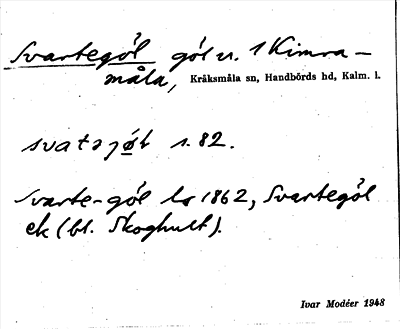 Svartegöl göl v. 1 Kimra-
måla, Kråksmåla sn, Handbörds hd, Kalm. l.
svatəjøl s. 82.
Svarte-göl ls 1862, Svartegöl
ek (bl. Skoghult).
Ivar Modéer 1948